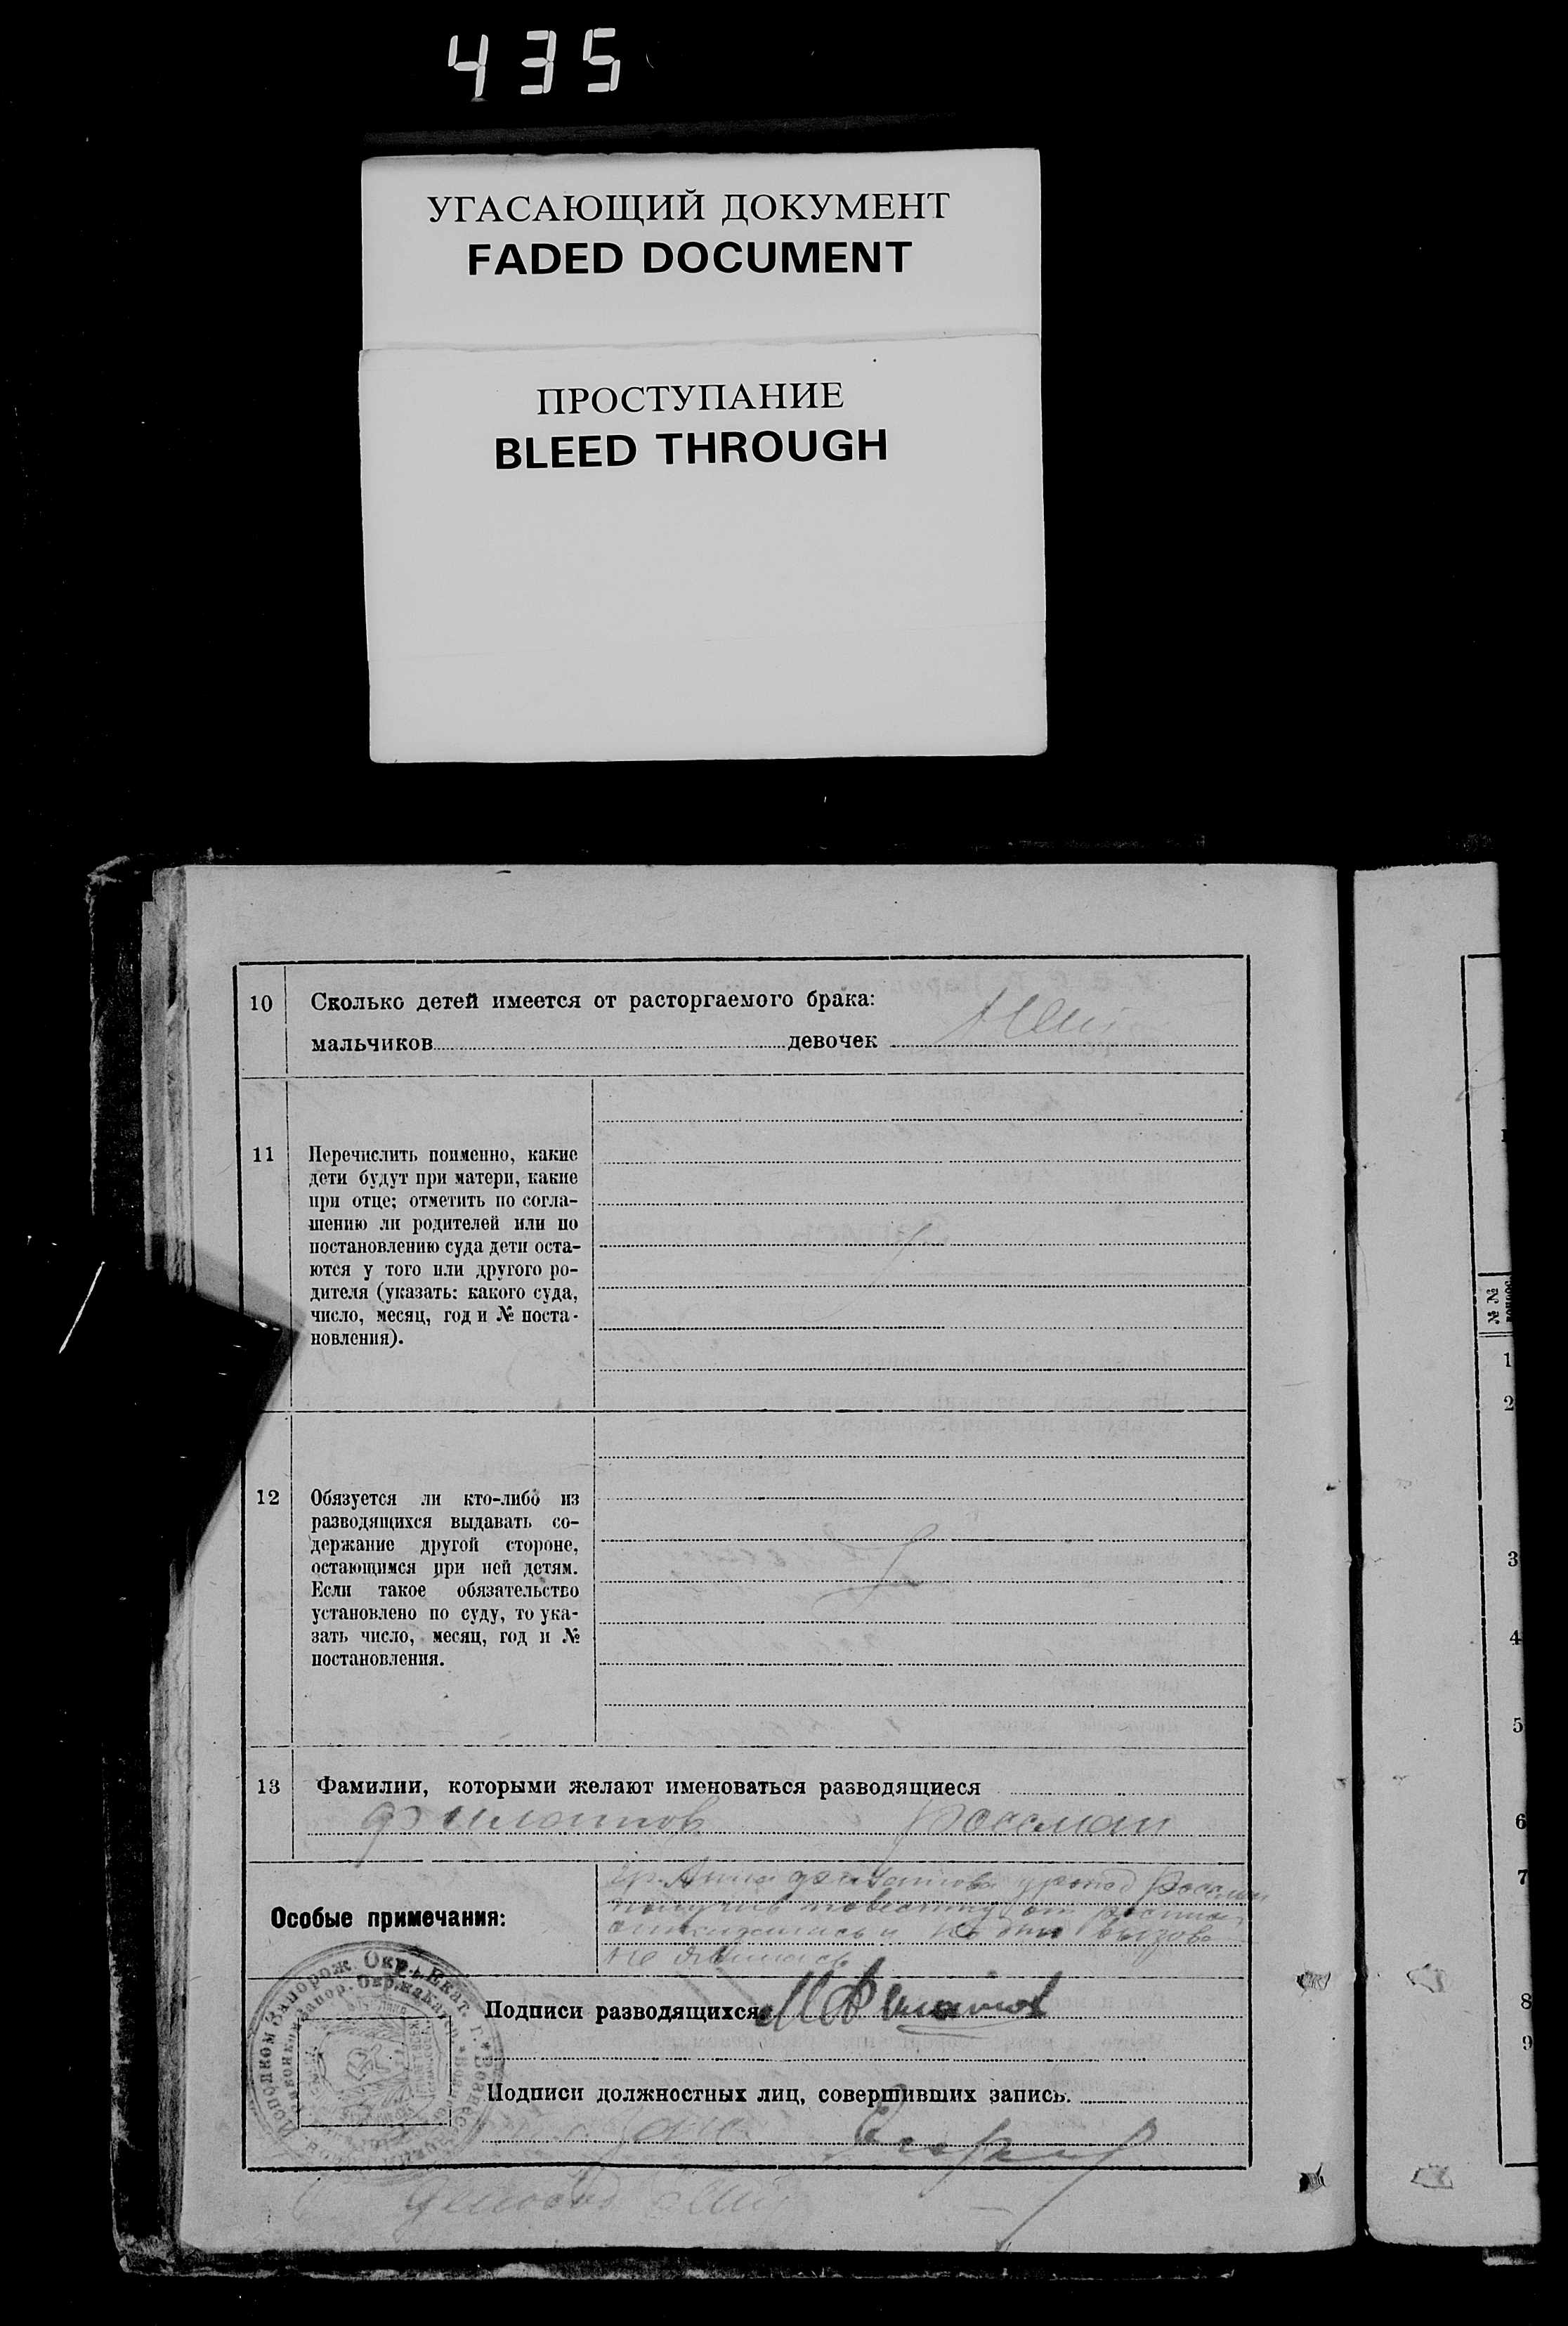 435
УГАСАЮЩИЙ ДОКУМЕНТ
FADED DOCUMENT
ПРОСТУПАНИЕ
BLEED THROUGH
10 Сколько детей имеется от расторгаемого брака:
мальчиков девочек
11 Перечислить поименно, какие
дети будут при матери, какие
при отце; отметить по согла-
шению ли родителей или по
постановлению суда дети оста-
ются у того или другого ро-
дителя (указать: какого суда,
число, месяц, год и № поста-
новления).
12 Обязуется ли кто-либо из
разводящихся выдавать со-
держание другой стороне,
остающимся при ней детям.
Если такое обязательство
установлено по суду, то ука-
зать число, месяц, год и №
постановления.
13 Фамилии, которыми желают именоваться разводящиеся
Филатов Россман
гр. Анна Филатова урожд Россман
получив повестку от
и ко дню вызова
не явилась
Особые примечания:
Подписи разводящихся
Подписи должностных лиц, совершивших запись.
№ №
1
2
3
4
5
6
7
8
9